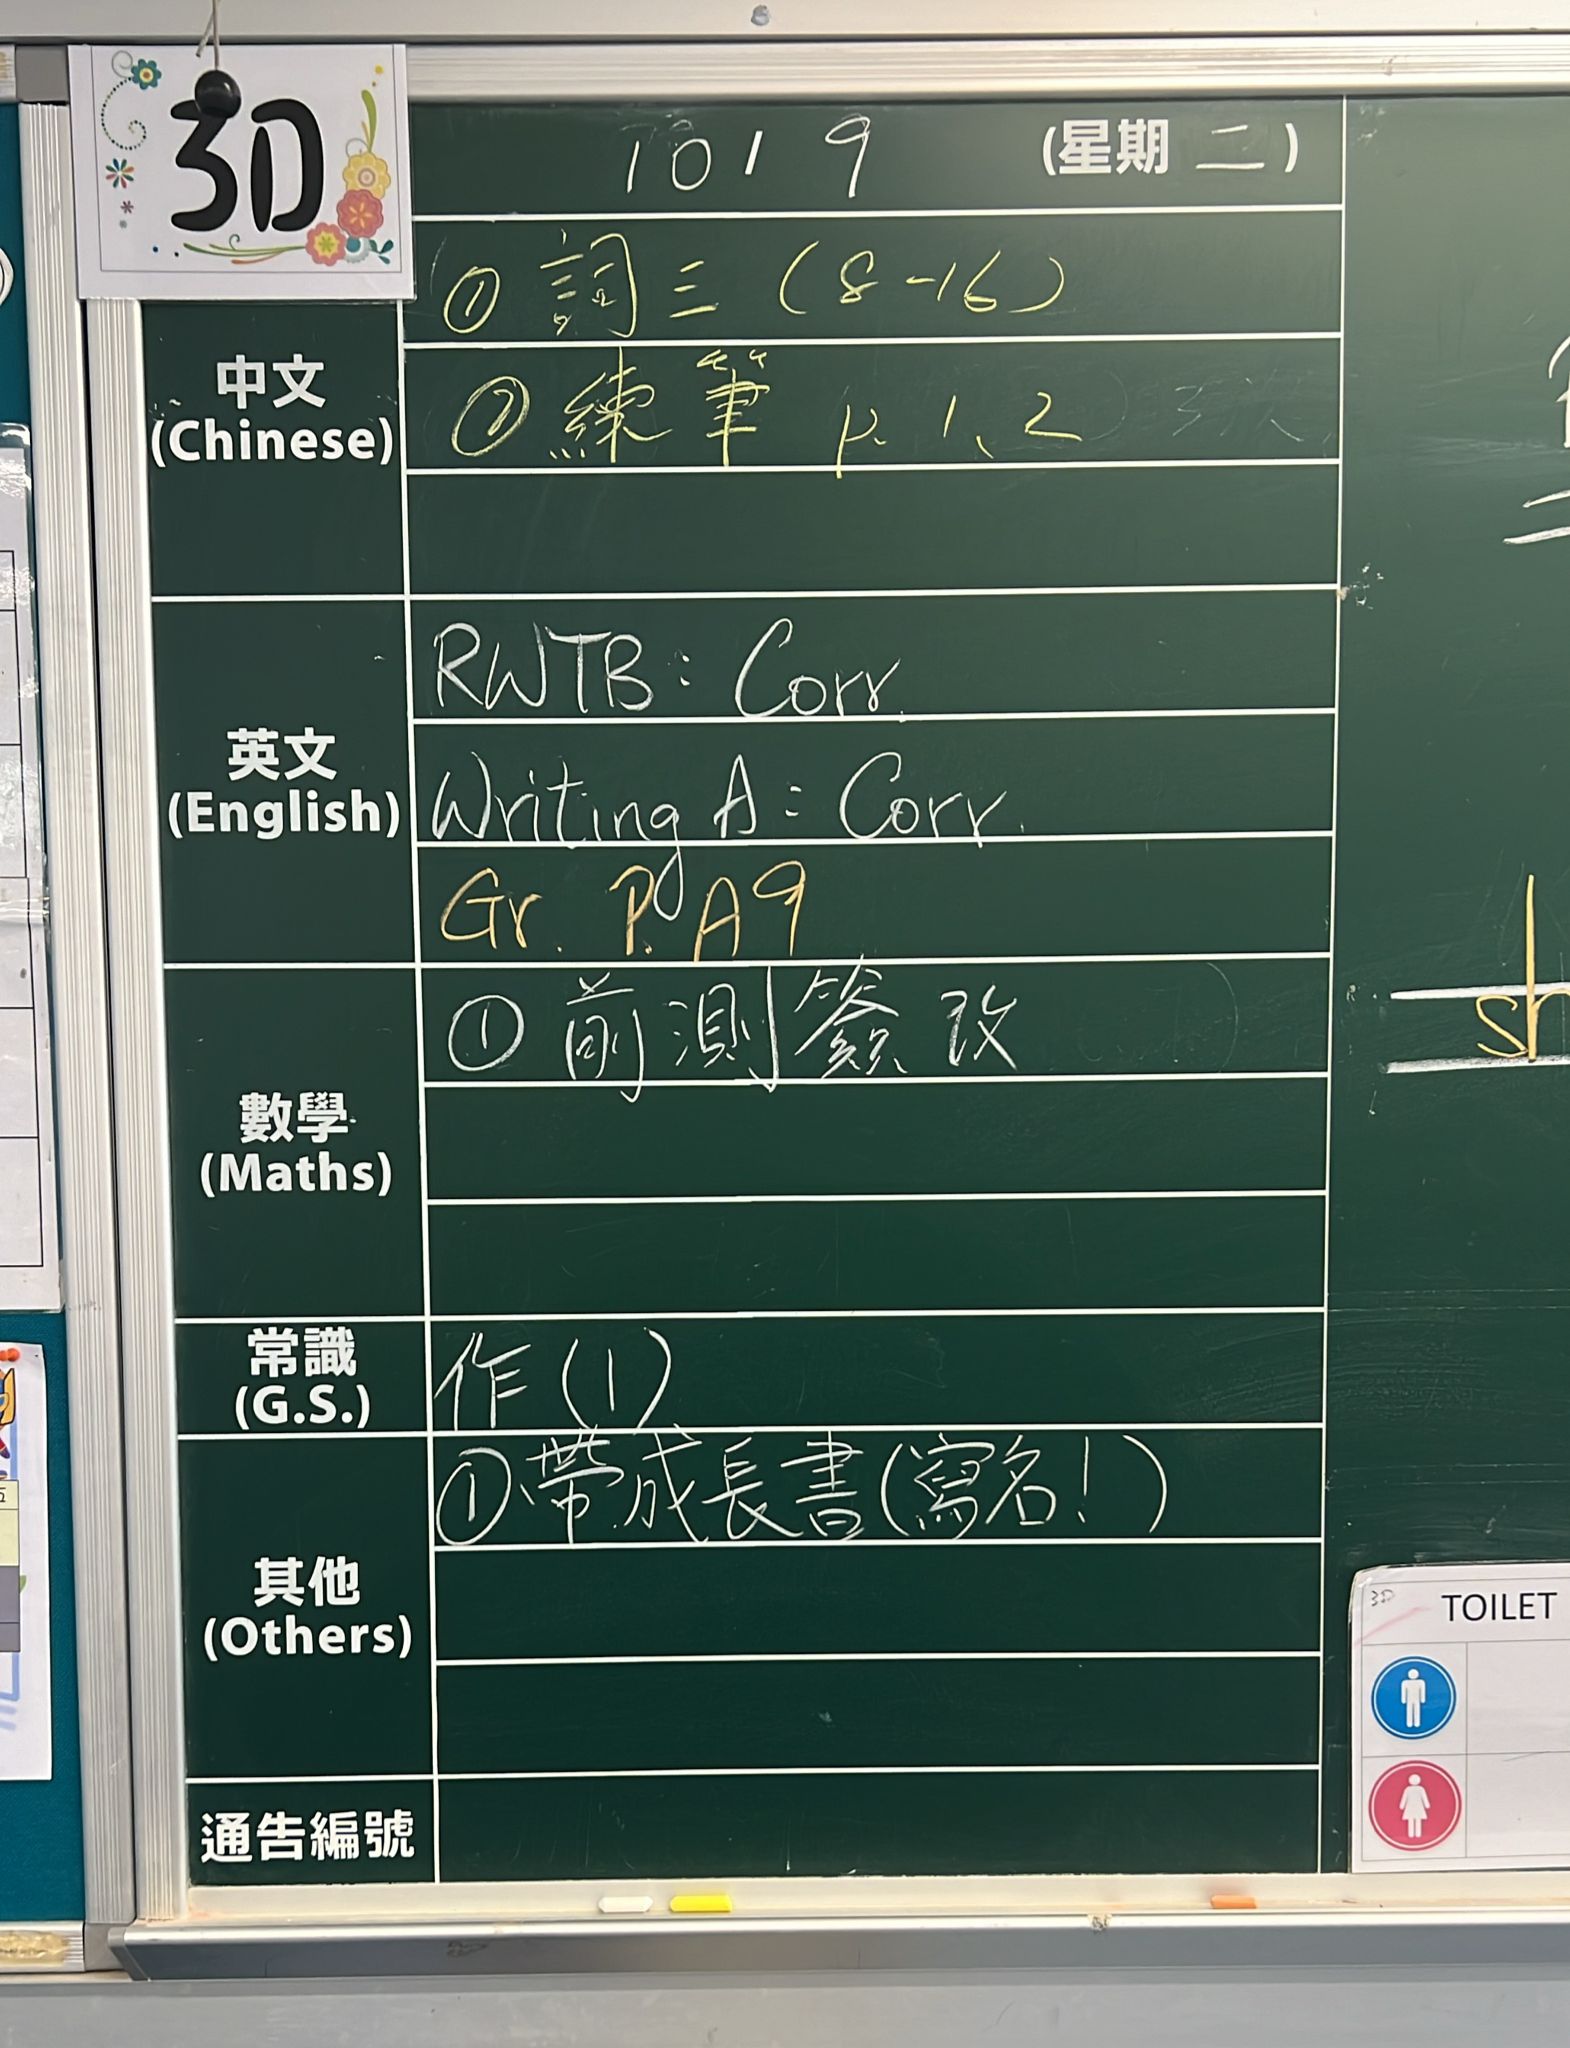 3D
10 / 9 (星期 二 )
① 詞三 (8-16)
中文
(Chinese)
② 練筆 p. 1、2
RWTB: Corr.
英文
(English)
Writing A: Corr.
Gr. P. A9
① 前測簽改
數學
(Maths)
常識
(G.S.)
作(1)
① 帶成長書(寫名!)
其他
(Others)
通告編號
sh
3D
TOILET